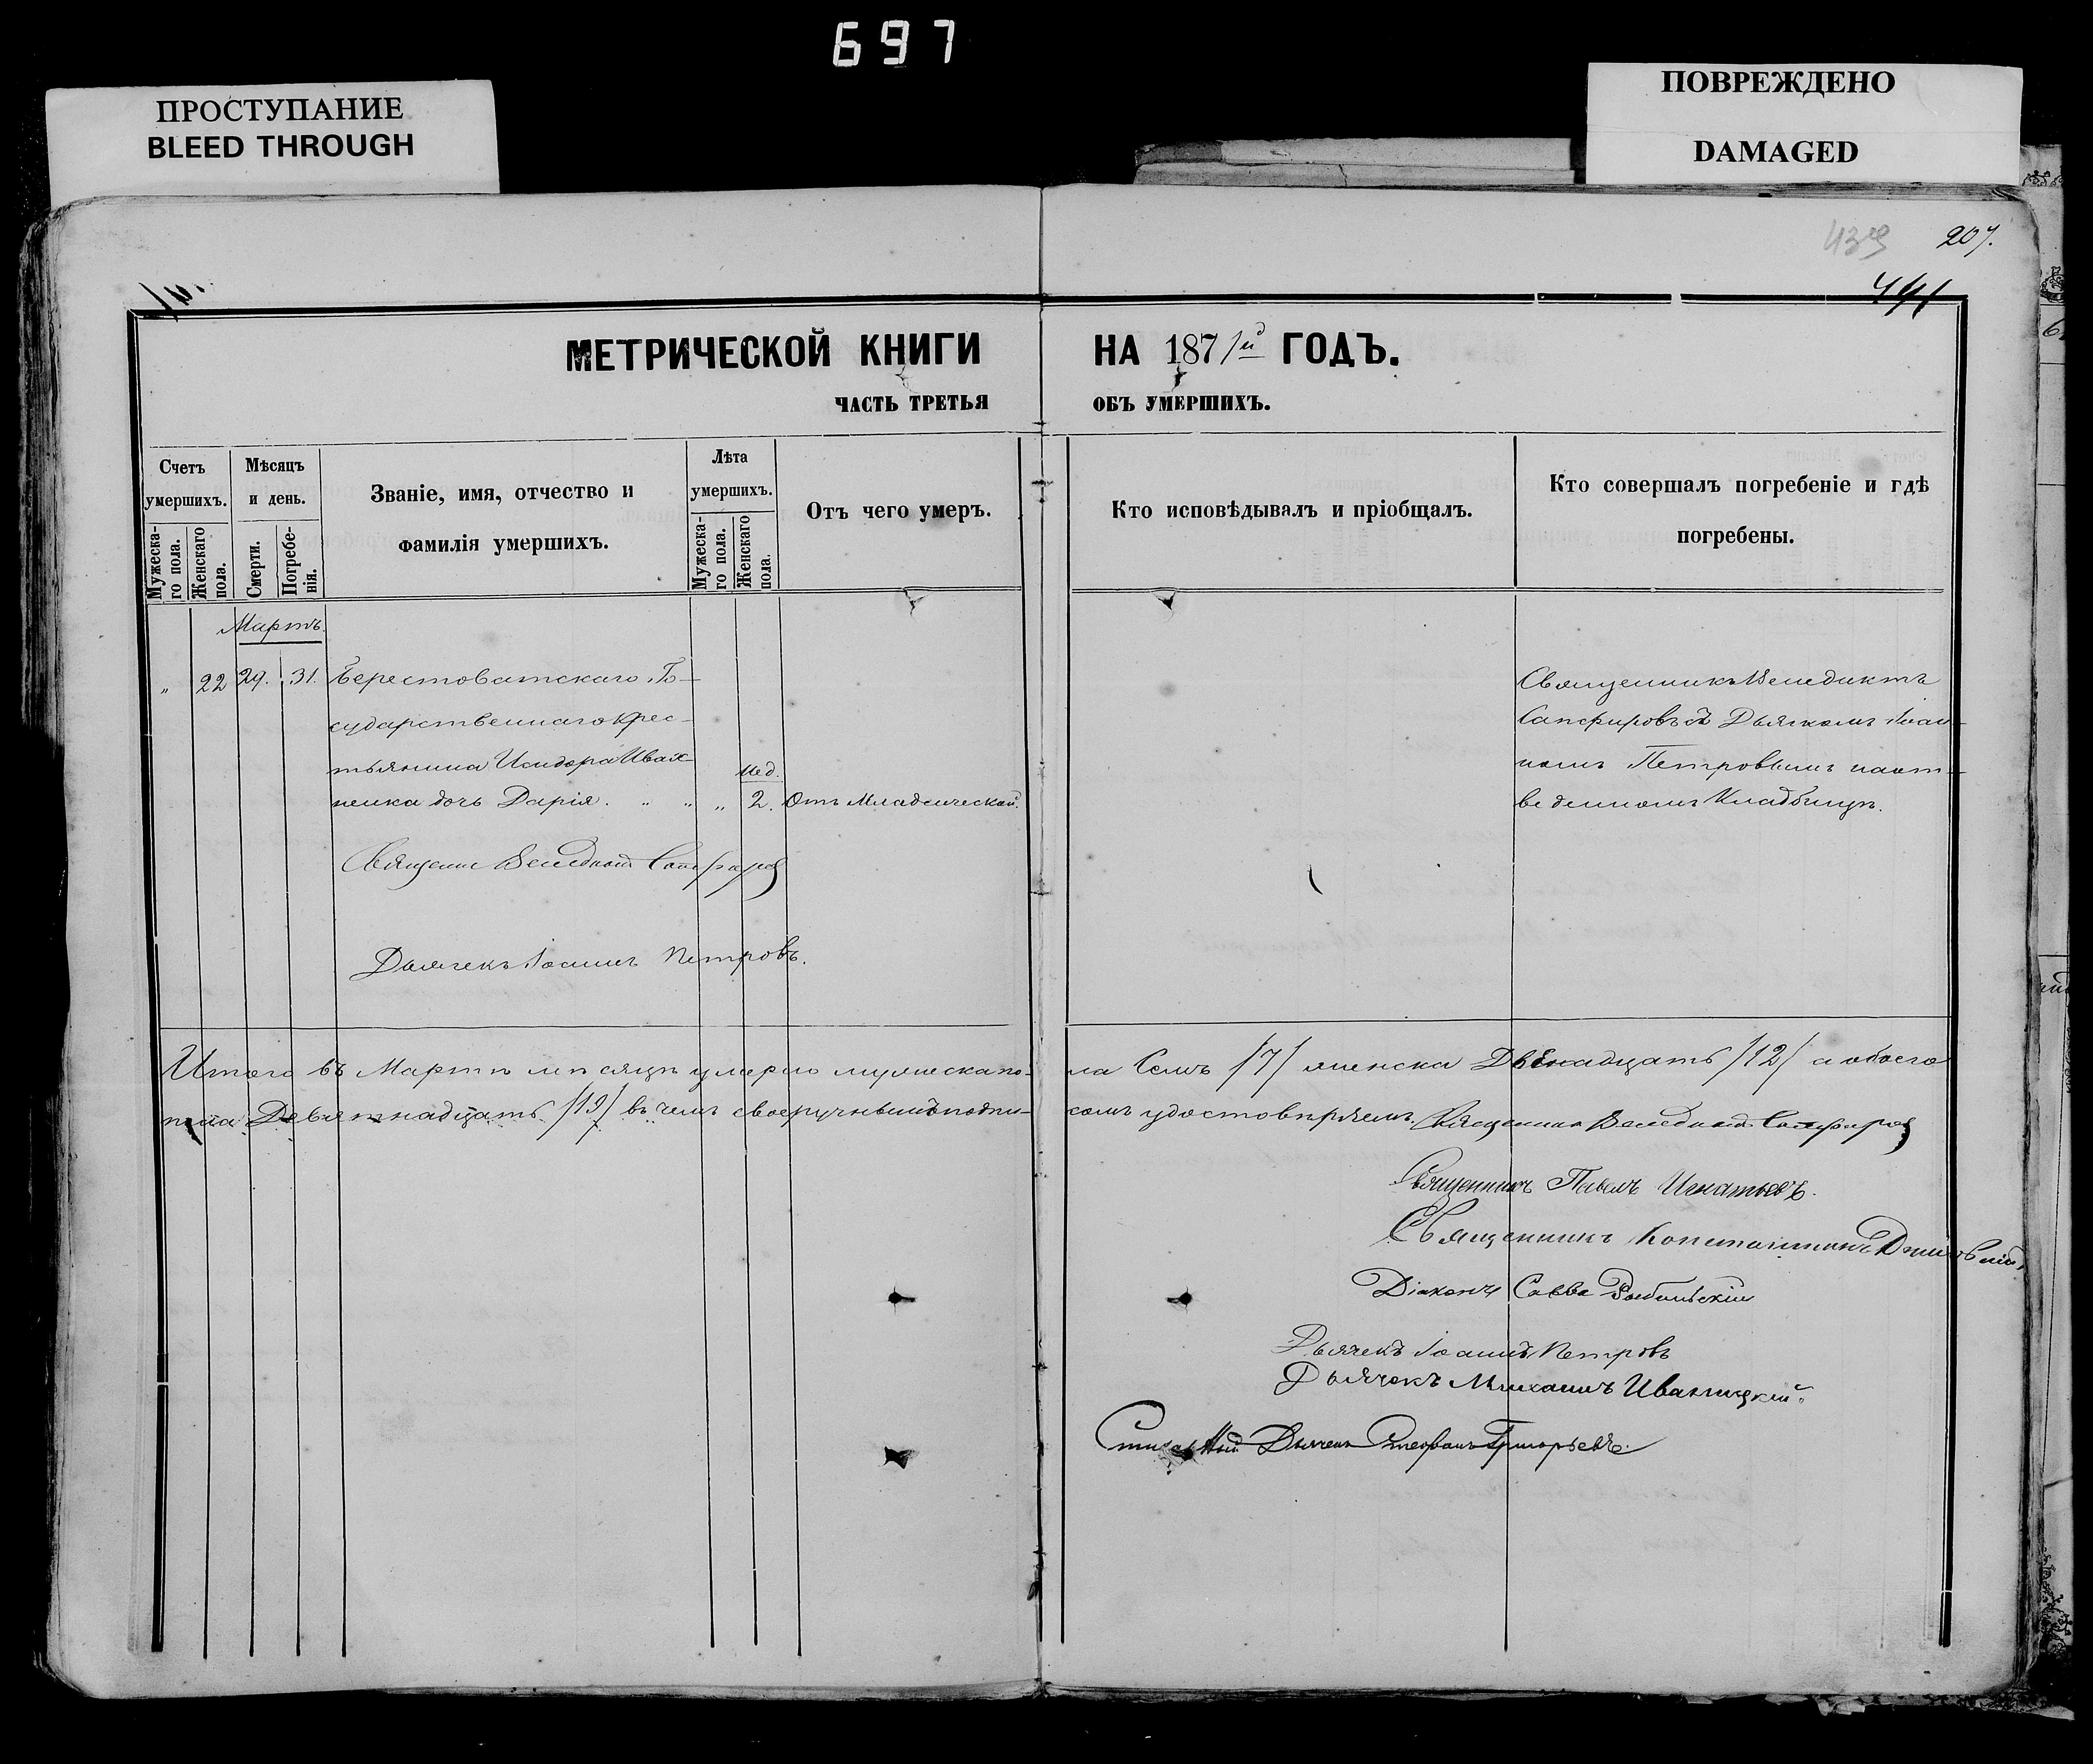 697
ПРОСТУПАНИЕ
BLEED THROUGH
ПОВРЕЖДЕНО
DAMAGED
439 207.
МЕТРИЧЕСКОЙ КНИГИ НА 1871й ГОДЪ.
ЧАСТЬ ТРЕТЬЯ ОБЪ УМЕРШИХЪ.
Счетъ умершихъ.
Мужеска-го пола.
Женскаго пола.
Мѣсяцъ и день.
Смерти.
Погребе-нія.
Званіе, имя, отчество и
фамилія умершихъ.
Лѣта умершихъ.
Мужеска-го пола.
Женскаго пола.
Отъ чего умеръ.
Кто исповѣдывалъ и пріобщалъ.
Кто совершалъ погребеніе и гдѣ
погребены.
Мартъ
" 22 29. 31. Берестоватскаго Го-
сударственнаго крес-
тьянина Исидора Ивах-
ненка дочь Дарія. " " " Мѣд. 2. Отъ Младенческой.
Священникъ Венедиктъ
Сапфировъ съ Дьячкомъ Іоан-
номъ Петровымъ на от-
веденномъ Кладбищѣ.
Священ Венедиктъ Сапфиров
Дьячекъ Іоаннъ Петровъ.
Итого въ Мартѣ мѣсяцѣ умерло мужеска по-
ла Семь /7/ женска Двѣнадцать /12/ а обоего
пола Девятнадцать /19/ въ чемъ своеручнымъ подпи-
сомъ удостовѣряемъ. Священникъ Венедиктъ Сапфиров
Священникъ Павелъ Игнатьевъ.
Священникъ Константинъ
Діаконъ Савва
Дьячекъ Іоаннъ Петровъ
Дьячокъ Михаилъ Иваницкій.
Дьячекъ Стефанъ Григорьевъ.